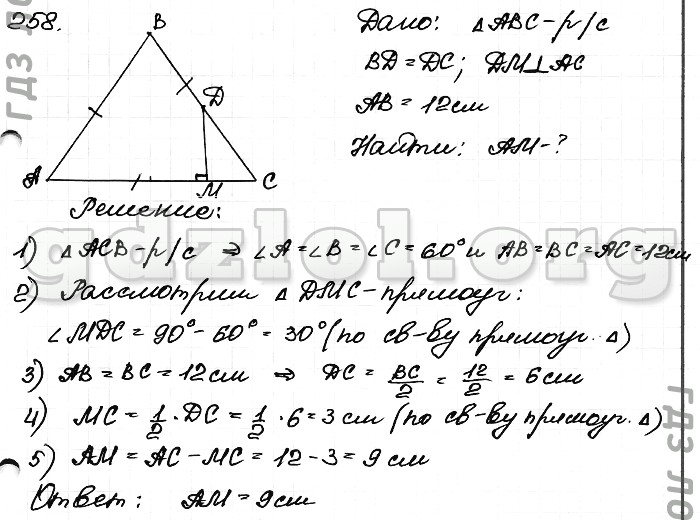 258.
B
Дано: △ABC-р/с
BD = DC; DM⊥AC
AB = 12см
Найти: AM-?
D
A
M
C
Решение:
1) △ACB-р/с ⇒ ∠A = ∠B = ∠C = 60° и AB = BC = AC = 12см
2) Рассмотрим △DMC-прямоуг:
∠MDC = 90° - 60° = 30° (по св-ву прямоуг. △)
3) AB = BC = 12см ⇒ DC = BC/2 = 12/2 = 6см
4) MC = 1/2 · DC = 1/2 · 6 = 3 см (по св-ву прямоуг. △)
5) AM = AC - MC = 12 - 3 = 9 см
Ответ: AM = 9см
gdzlol.org
ГДЗ ЛО
ГДЗ ЛО